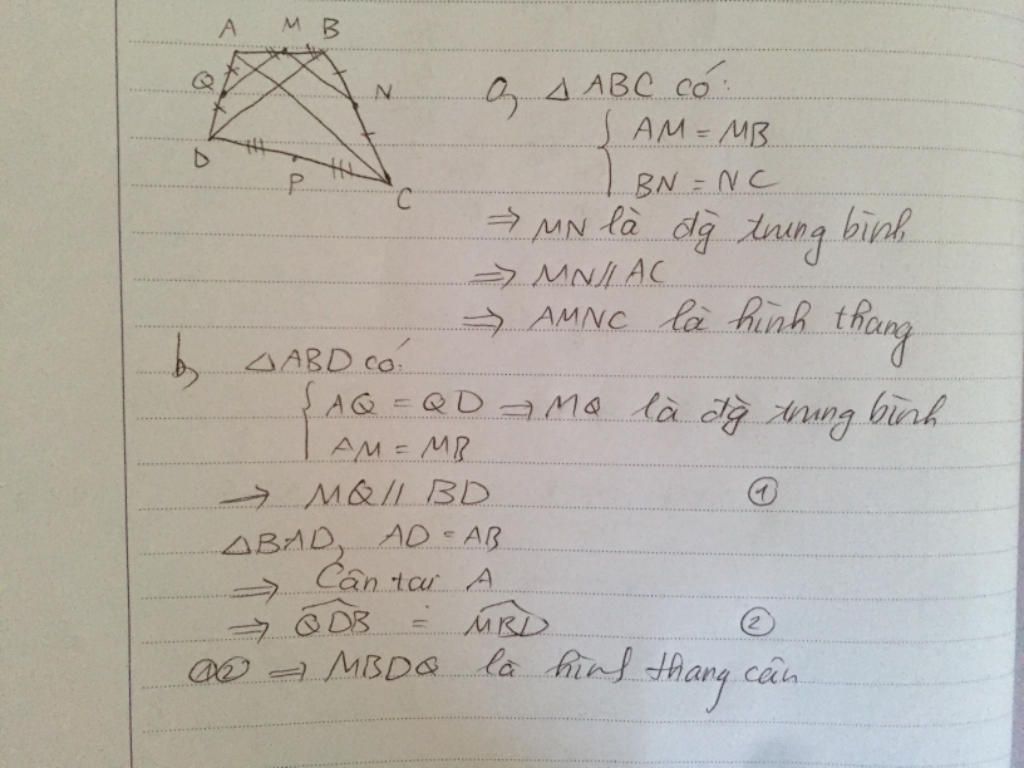 A M B
Q N
D P C
a, △ ABC có:
{ AM = MB
BN = NC
⇒ MN là đg̀ trung bình
⇒ MN // AC
⇒ AMNC là hình thang
b, △ABD có:
{ AQ = QD ⇒ MQ là đg̀ trung bình
AM = MB
⇒ MQ // BD ①
△BAD, AD = AB
⇒ Cân tại A
⇒ \widehat{QDB} = \widehat{MBD} ②
①② ⇒ MBDQ là hình thang cân